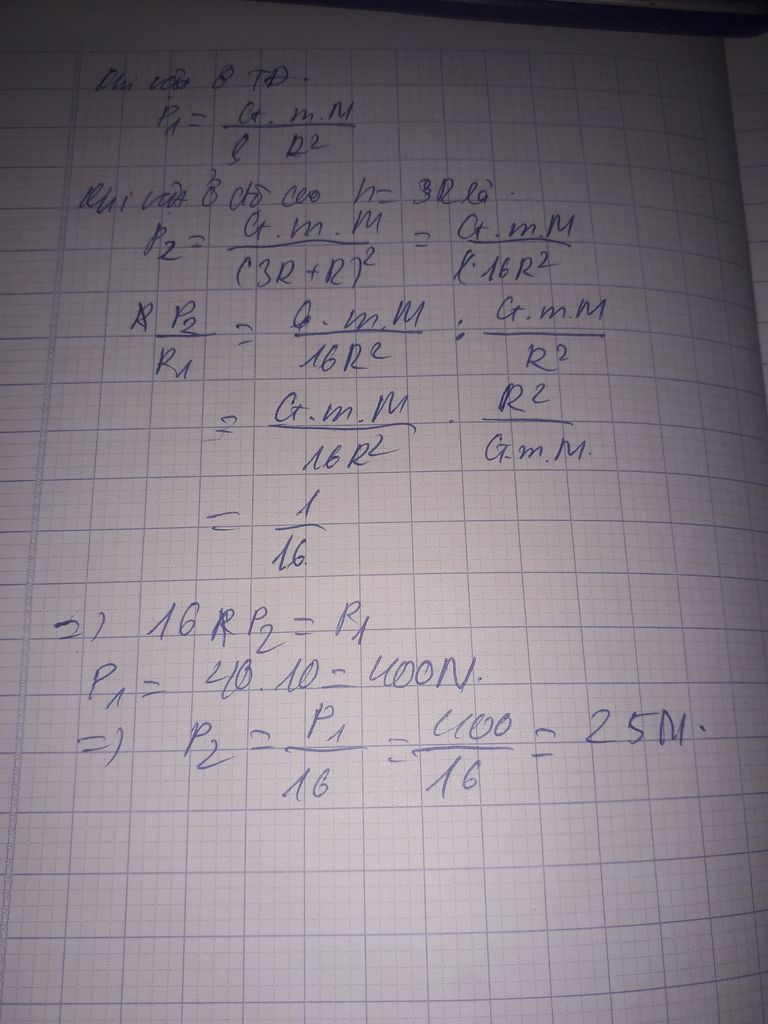 Khi vật ở TĐ.
P1 = G.m.M / R²
Khi vật ở độ cao h = 3R là.
P2 = G.m.M / (3R+R)² = G.m.M / 16R²
P2 / P1 = G.m.M / 16R² : G.m.M / R²
= G.m.M / 16R² . R² / G.m.M.
= 1 / 16
=) 16 P2 = P1
P1 = 40.10 = 400N.
=) P2 = P1 / 16 = 400 / 16 = 25N.